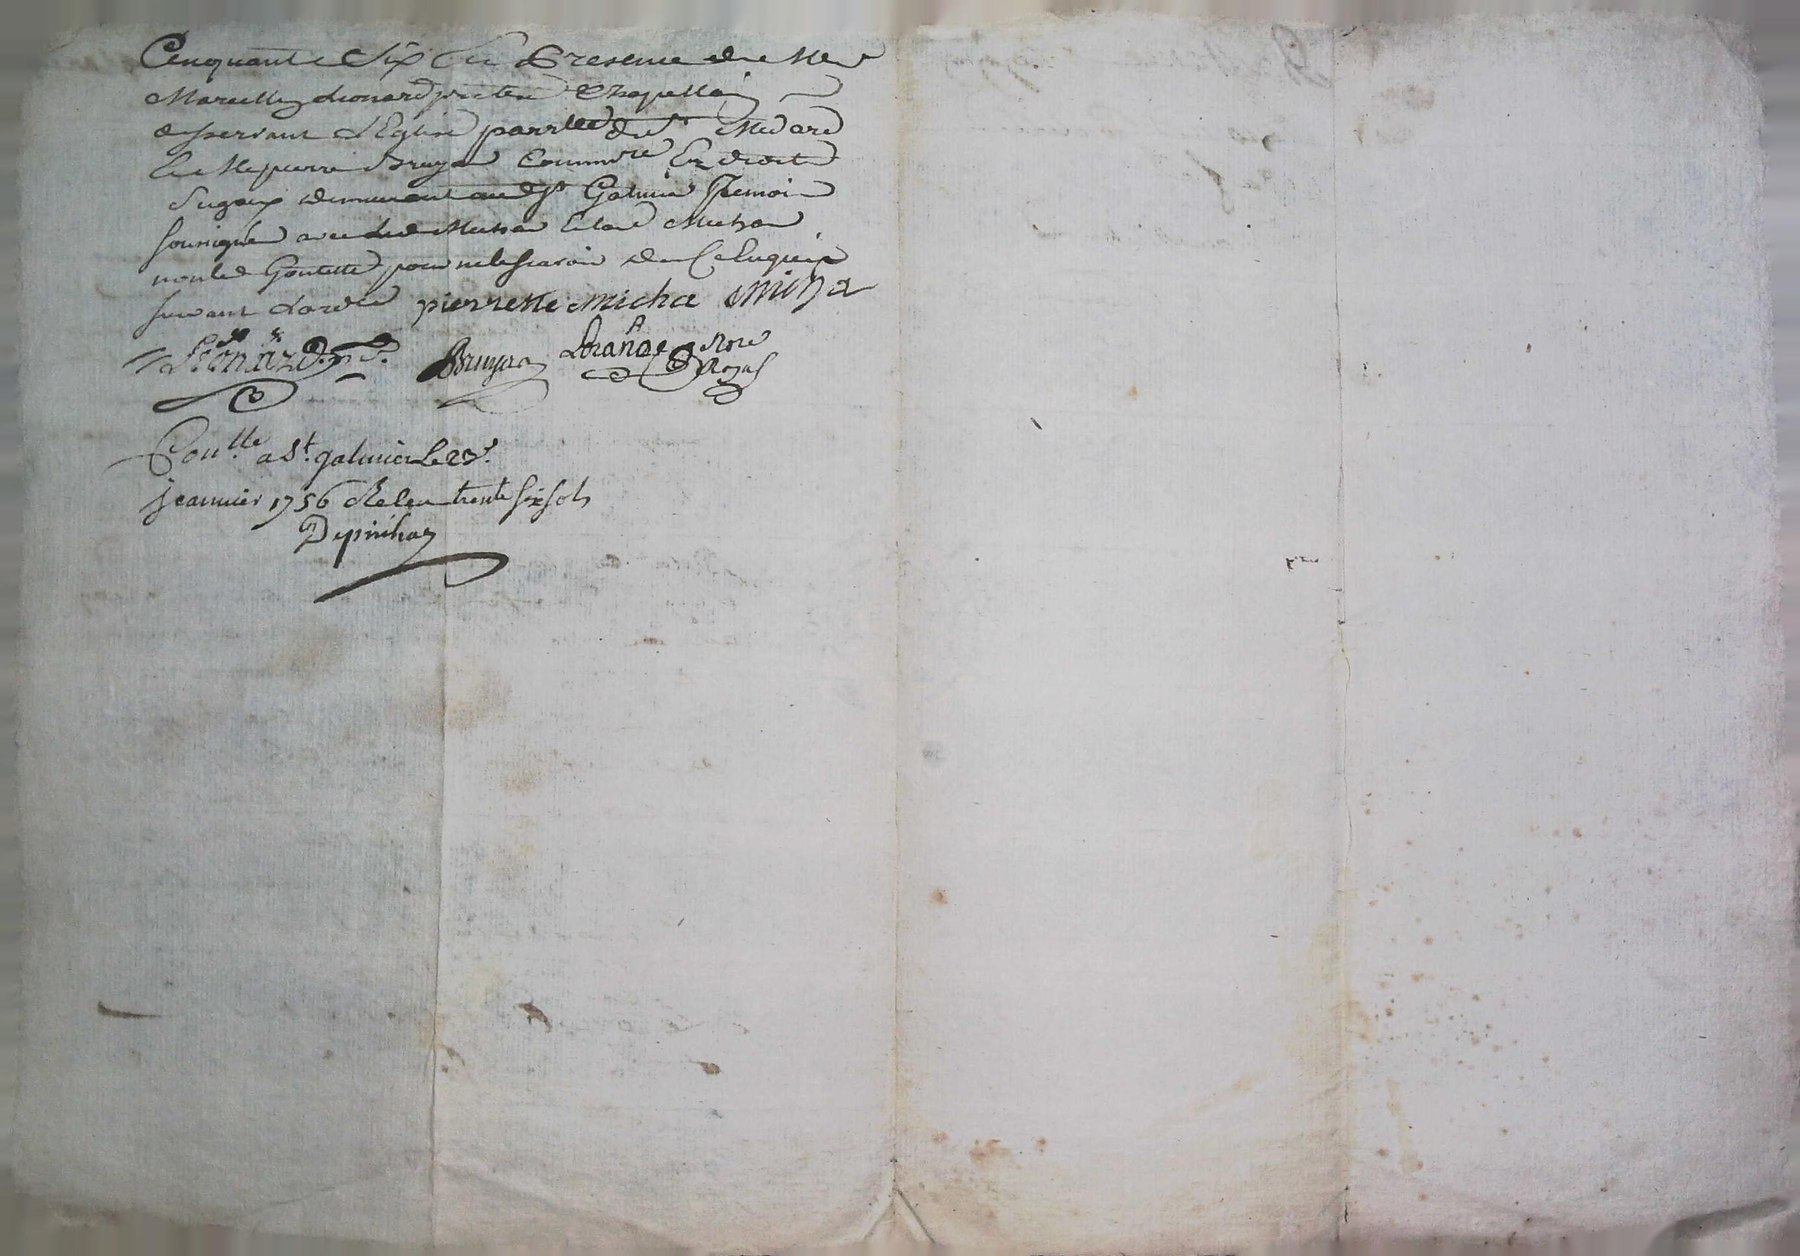 Cinquante Six En Presence de Me
Marcellin Leonard prestre Chapellain
desservant L'Eglise parrlle de St Medard
Et Me pierre Bruyas Commre Ex droits
Seigaux demeurant aud St Galmier Temoins
soussignés avec led Michon Et lad Michon
non led Goutette pour ne le scavoir de Ce Enquis
suivant Lord'ce pierrette micha Micha
Leonard ptre Bruyas Lorange Nore Royal
Conlle a St galmier Le 23e
jeanvier 1756 Releu trente six sols
Depinihaz